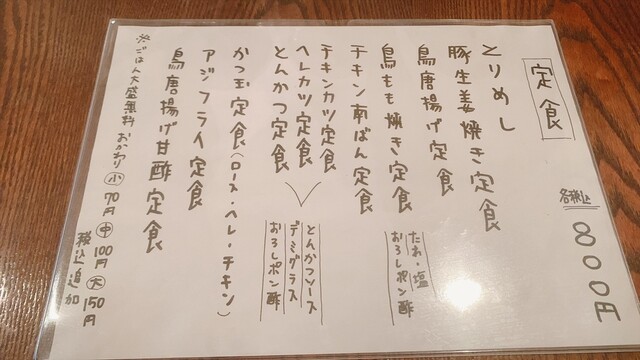 定食
各税込
800円
とりめし
豚生姜焼き定食
鳥唐揚げ定食
鳥もも焼き定食
たれ・塩
おろしポン酢
チキン南ばん定食
チキンカツ定食
ヘレカツ定食
とんかつ定食
とんかつソース
デミグラス
おろしポン酢
かつ玉定食(ロース・ヘレ・チキン)
アジフライ定食
鳥唐揚げ甘酢定食
※ごはん大盛無料 おかわり 小 70円 中 100円 大 150円
税込追加